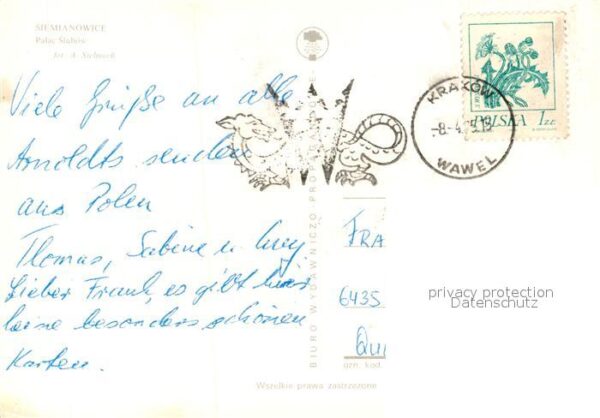 SIEMIANOWICE
Pałac Ślubów
fot. A. Stelmach
Viele Grüße an alle
Arnoldts senden
aus Polen
Thomas, Sabine u.
Lieber Frank, es gibt hier
keine besonders schönen
Karten.
BIURO WYDAWNICZO PROPAGANDOWE
KRAKÓW
-8.-4. 5.18
WAWEL
POLSKA 1ZŁ
FRA
6435
privacy protection
Datenschutz
ozn. kod.
Wszelkie prawa zastrzeżone